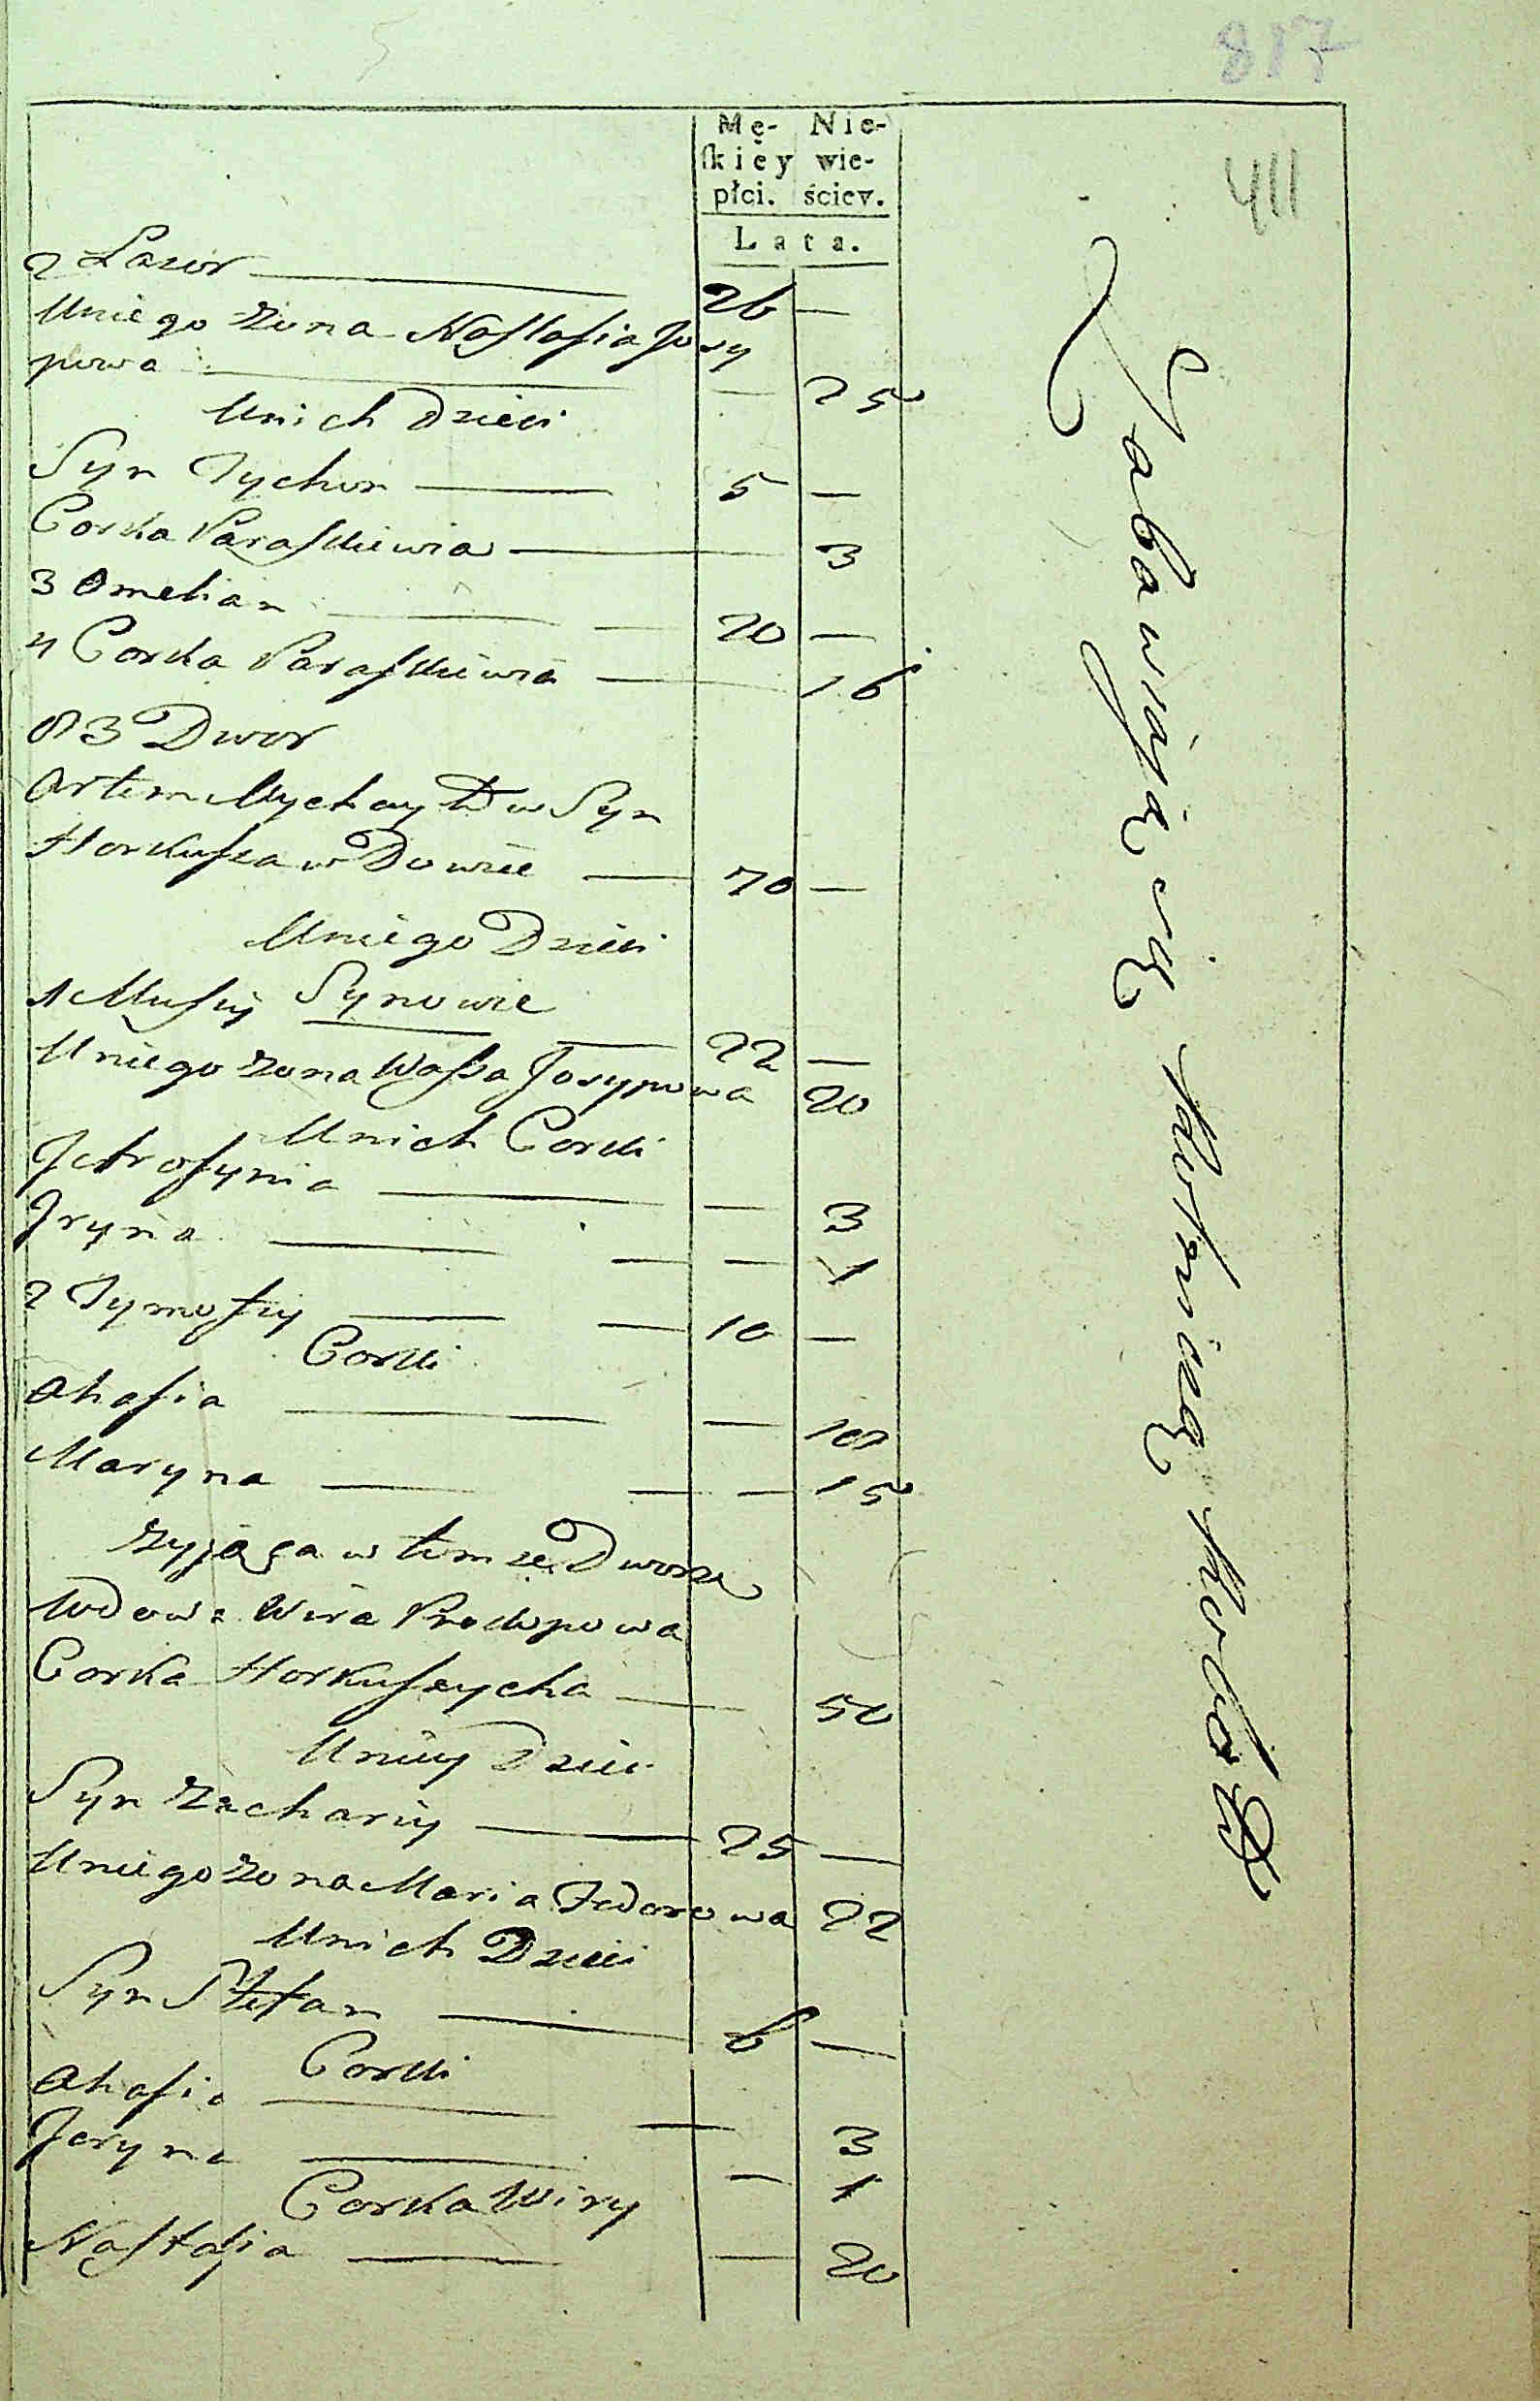 817
411
Mę- Nie-
skiey wie-
płci. ściey.
Lata.
2 Lazor — 26 —
Uniego zona Nastasia Josy
powa — — 25
Unich Dzieci
Syn Tychon — 5 —
Corka Paraskiewia — 3
3 Omelian — 20 —
4 Corka Paraskiewia — 16
83 Dwor
Artem Mychayłow Syn
Horkusza w Dowiec — 70 —
Uniego Dzieci
Synowie
1 Musiy — 22 —
Uniego zona Wassa Josypowa 20
Unich Corki
Jefrosynia — — 3
Jryna — — 1
2 Tymofiy — 10 —
Corki
Ahafia — — 18
Maryna — — 15
zyjąca w tem ze Dworze
Wdowa Wira Prokopowa
Corka Horkuszycha — 50
Uniey Dzieci
Syn Zachariy — 25 —
Uniego zona Maria Fedorowa 22
Unich Dzieci
Syn Stefan — 6 —
Corki
Ahafia — 3
Jeryna — — 1
Corka Wiry
Nastasia — — 20
Zabawiaią się rolniczą robotą